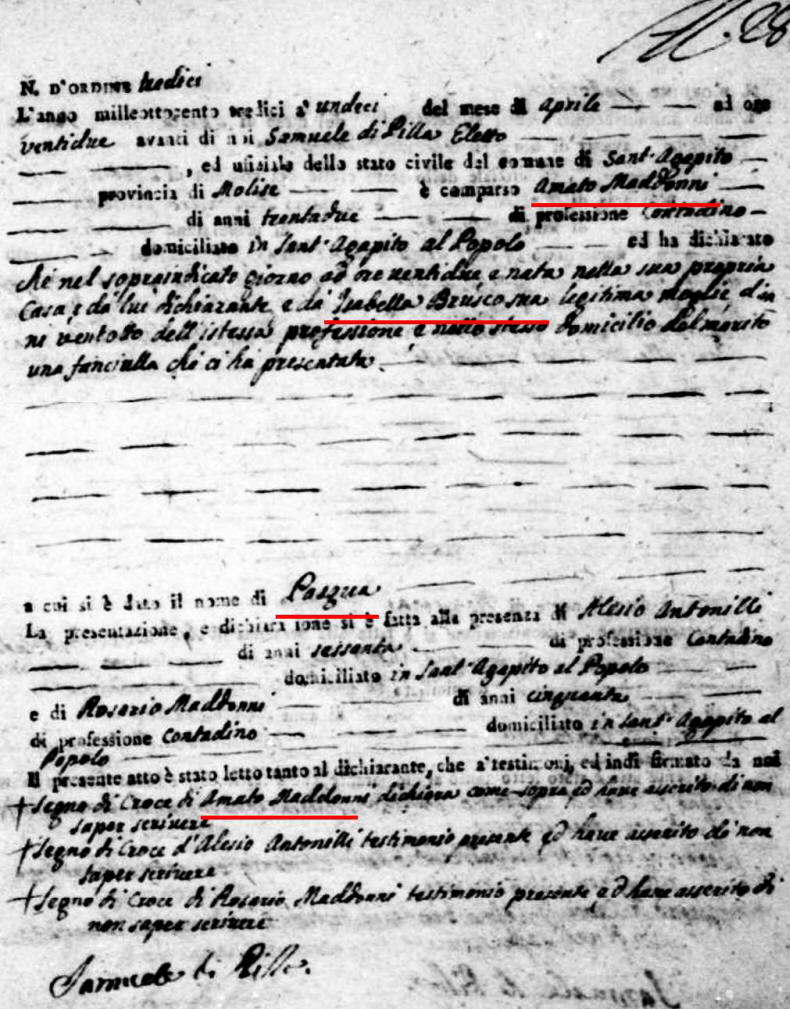 N. 28
N. D'ORDINE tredici
L'anno milleottocento tredici a' undeci del mese di Aprile ad ore
ventidue avanti di noi Samuele di Pilla Eletto
, ed ufiziale dello stato civile del comune di Sant'Agapito
provincia di Molise è comparso Amato Maddonni
di anni trentadue di professione Contadino
domiciliato in Sant'Agapito al Popolo ed ha dichiarato
che nel sopraindicato giorno ad ore ventidue e nata nella sua propria
Casa, e da lui dichiarante e da Isabella Brusco sua legitima moglie d'an
ni ventotto dell'istessa professione e nello stesso domicilio del marito
una fanciulla che ci ha presentata.
a cui si è dato il nome di Pasqua
La presentazione, e dichiarazione si è fatta alla presenza di Alesio Antonilli
di anni sassanta di professione Contadino
domiciliato in Sant'Agapito al Popolo
e di Rosario Maddonni di anni cinquanta
di professione Contadino domiciliato in Sant'Agapito al
Popolo
Il presente atto è stato letto tanto al dichiarante, che a' testimonj, ed indi firmato da noi
+ Segno di Croce di Amato Maddonni dichiara come sopra ed have asserito di non
saper scrivere
+ Segno di Croce d'Alesio Antonilli testimonio presente ed have asserito di non
saper scrivere
+ Segno di Croce di Rosario Maddonni testimonio presente ed have asserito di
non saper scrivere
Samuele di Pilla.